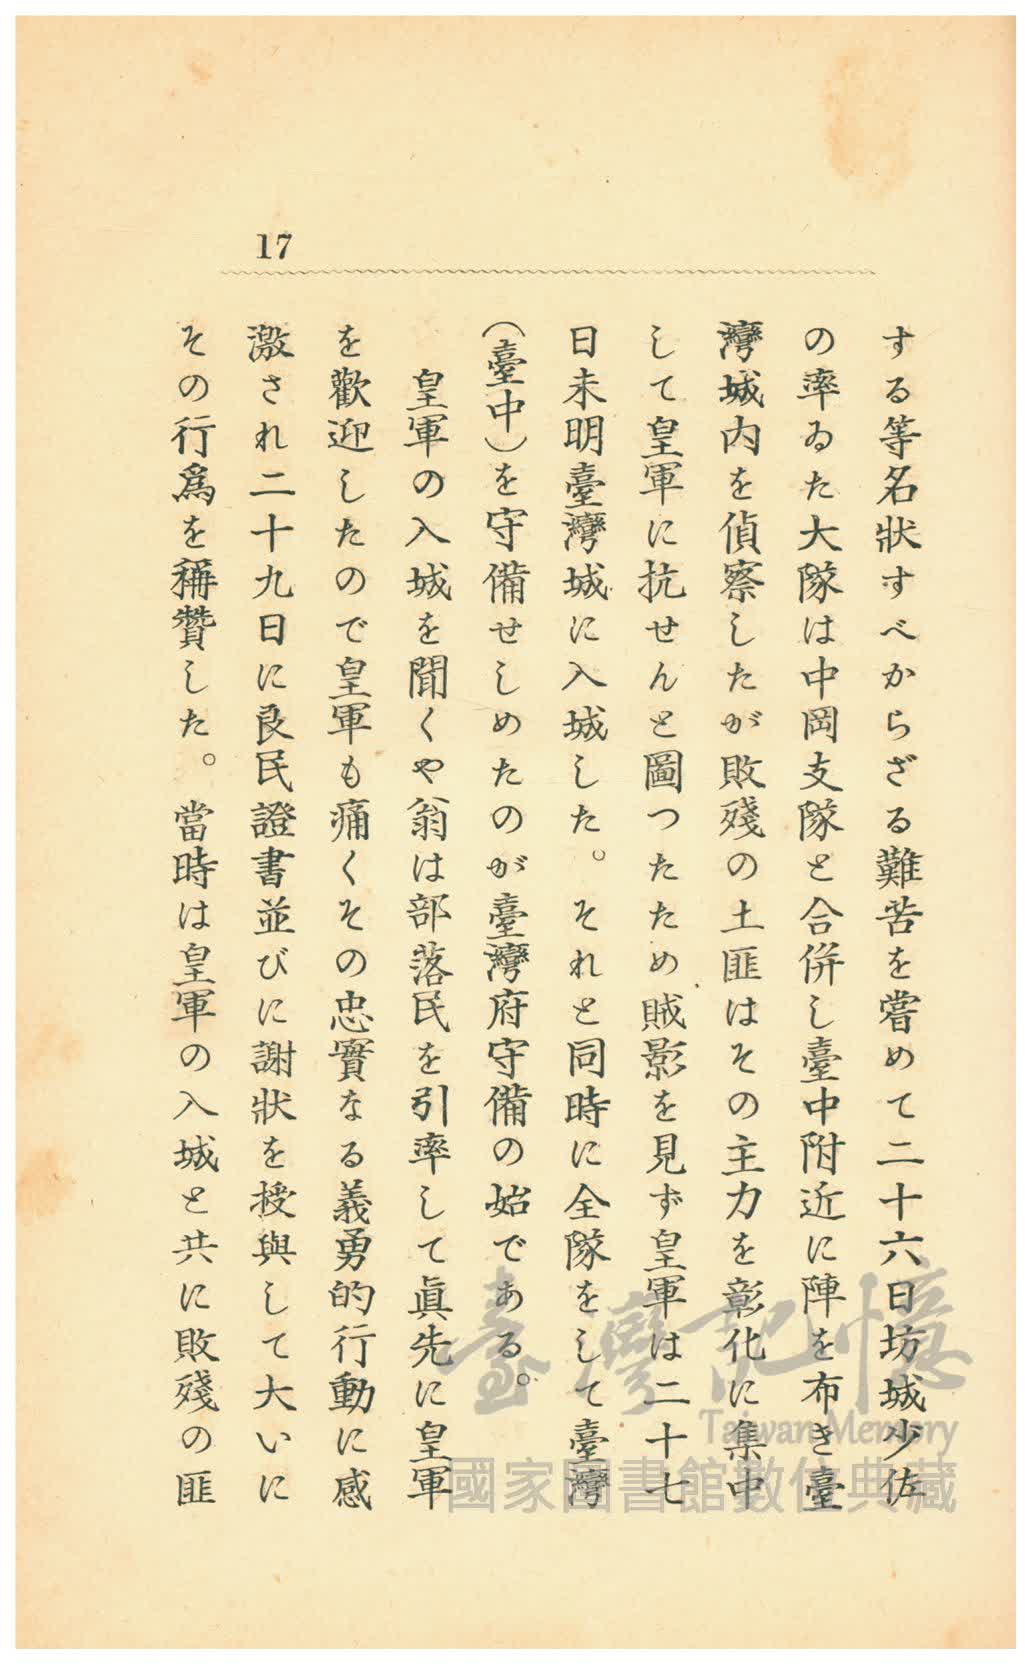 17
する等名狀すべからざる難苦を嘗めて二十六日坊城少佐
の率ゐた大隊は中岡支隊と合併し臺中附近に陣を布き臺
灣城內を偵察したが敗殘の土匪はその主力を彰化に集中
して皇軍に抗せんと圖つたため賊影を見ず皇軍は二十七
日未明臺灣城に入城した。それと同時に全隊をして臺灣
(臺中)を守備せしめたのが臺灣府守備の始である。
皇軍の入城を聞くや翁は部落民を引率して眞先に皇軍
を歡迎したので皇軍も痛くその忠實なる義勇的行動に感
激され二十九日に良民證書並びに謝狀を授與して大いに
その行爲を稱贊した。當時は皇軍の入城と共に敗殘の匪
臺灣記憶
Taiwan Memory
國家圖書館數位典藏